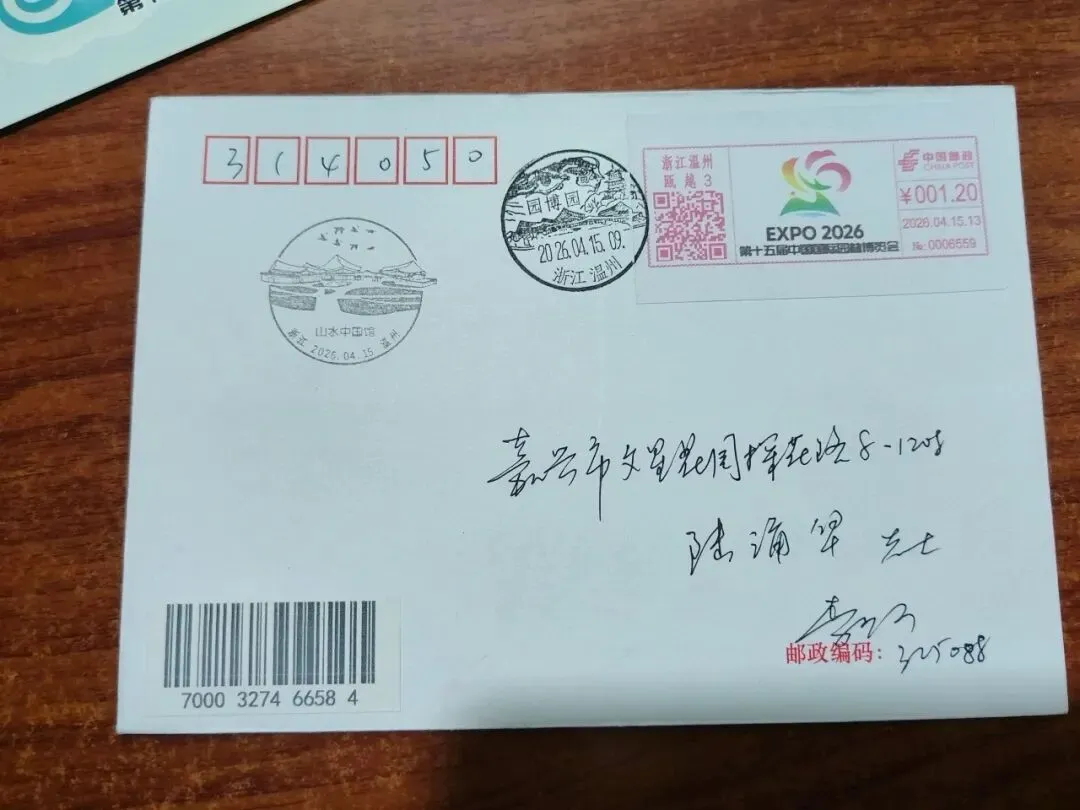 第
314050
园博园
2026.04.15.09.
浙江 温州
浙江温州
瓯越 3
EXPO 2026
第十五届中国国际园林博览会
中国邮政
CHINA POST
¥001.20
2026.04.15.13
№ 0006559
山水中国馆
浙江 2026.04.15 温州
嘉兴市文星花园探花路8-1208
陆涌 先生
邮政编码: 325088
7000 3274 6658 4